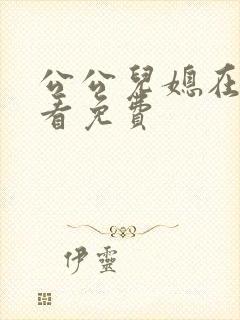 公公兒媳在
着免費
伊靈